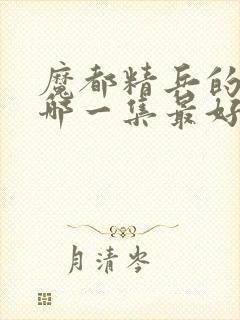 魔都精兵的
哪一集最好
月清岑